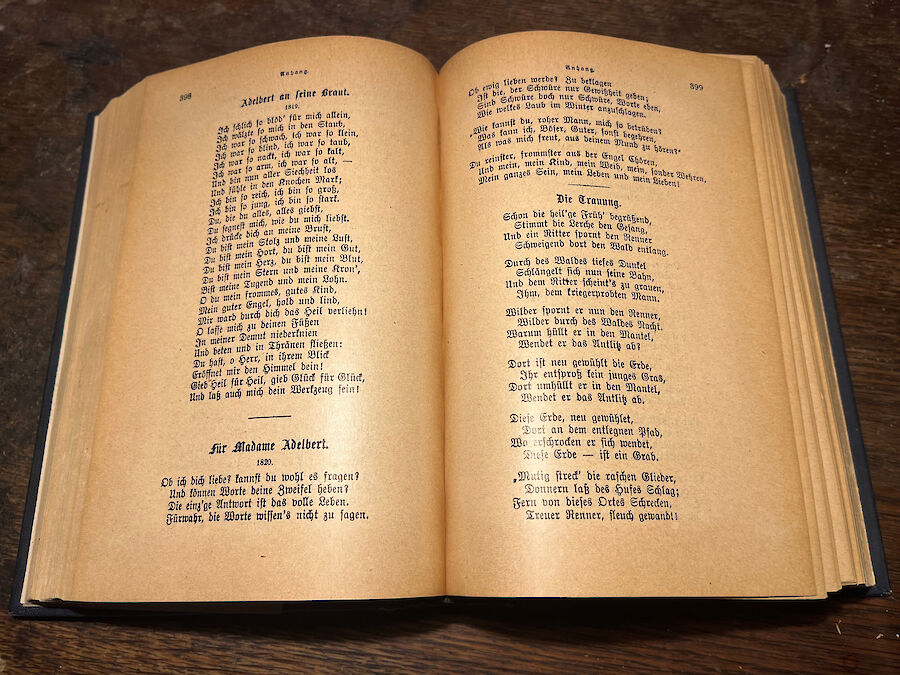 398
Anhang.
Adelbert an seine Braut.
1819.
Ich schlich so blöd' für mich allein,
Ich wälzte mich in den Staub,
Ich war so schwach, ich war so klein,
Ich war so blind, ich war so taub,
Ich war so nackt, ich war so kalt,
Ich war so arm, ich war so alt, —
Und bin nun aller Siechheit los
Und fühle in den Knochen Mark;
Ich bin so reich, ich bin so groß,
Ich bin so jung, ich bin so stark.
Du, die du alles, alles giebst,
Du segnest mich, wie du mich liebst.
Ich drücke dich an meine Brust,
Du bist mein Stolz und meine Lust,
Du bist mein Hort, du bist mein Gut,
Du bist mein Herz, du bist mein Blut,
Du bist mein Stern und meine Kron',
Bist meine Tugend und mein Lohn.
O du mein frommes, gutes Kind,
Mein guter Engel, hold und lind,
Mir ward durch dich das Heil verliehn!
O lasse mich zu deinen Füßen
In meiner Demut niederknien
Und beten und in Thränen fließen:
Du hast, o Herr, in ihrem Blick
Eröffnet mir den Himmel dein!
Gieb Heil für Heil, gieb Glück für Glück,
Und laß auch mich dein Werkzeug sein!
Für Madame Adelbert.
1820.
Ob ich dich liebe? kannst du wohl es fragen?
Und können Worte deine Zweifel heben?
Die einz'ge Antwort ist das volle Leben.
Fürwahr, die Worte wissen's nicht zu sagen.
Anhang.
399
Ob ewig lieben werde? Zu beklagen
Ist die, der Schwüre nur Gewißheit geben;
Sind Schwüre doch nur Schwüre, Worte eben,
Wie welkes Laub im Winter anzuschlagen.
„Wie kannst du, roher Mann, mich so betrüben?
Was kann ich, Böser, Guter, sonst begehren,
Als was mich freut, aus deinem Mund zu hören?“
Du reinster, frommster aus der Engel Chören,
Und mein, mein Kind, mein Weib, mein, sonder Wehren,
Mein ganzes Sein, mein Leben und mein Lieben!
Die Trauung.
Schon die heil'ge Früh' begrüßend,
Stimmt die Lerche den Gesang,
Und ein Ritter spornt den Renner
Schweigend dort den Wald entlang.
Durch des Waldes tiefes Dunkel
Schlängelt sich nun seine Bahn,
Und dem Ritter scheint's zu grauen,
Ihm, dem kriegerprobten Mann.
Wilder spornt er nun den Renner,
Wilder durch des Waldes Nacht.
Warum hüllt er in den Mantel,
Wendet er das Antlitz ab?
Dort ist neu gewühlt die Erde,
Ihr entsproß kein junges Gras,
Dort umhüllt er in den Mantel,
Wendet er das Antlitz ab.
Diese Erde, neu gewühlet,
Dort an dem entlegnen Pfad,
Wo erschrocken er sich wendet,
Diese Erde — ist ein Grab.
„Mutig streck' die raschen Glieder,
Donnern laß des Hufes Schlag;
Fern von dieses Ortes Schrecken,
Treuer Renner, fleuch gewandt!